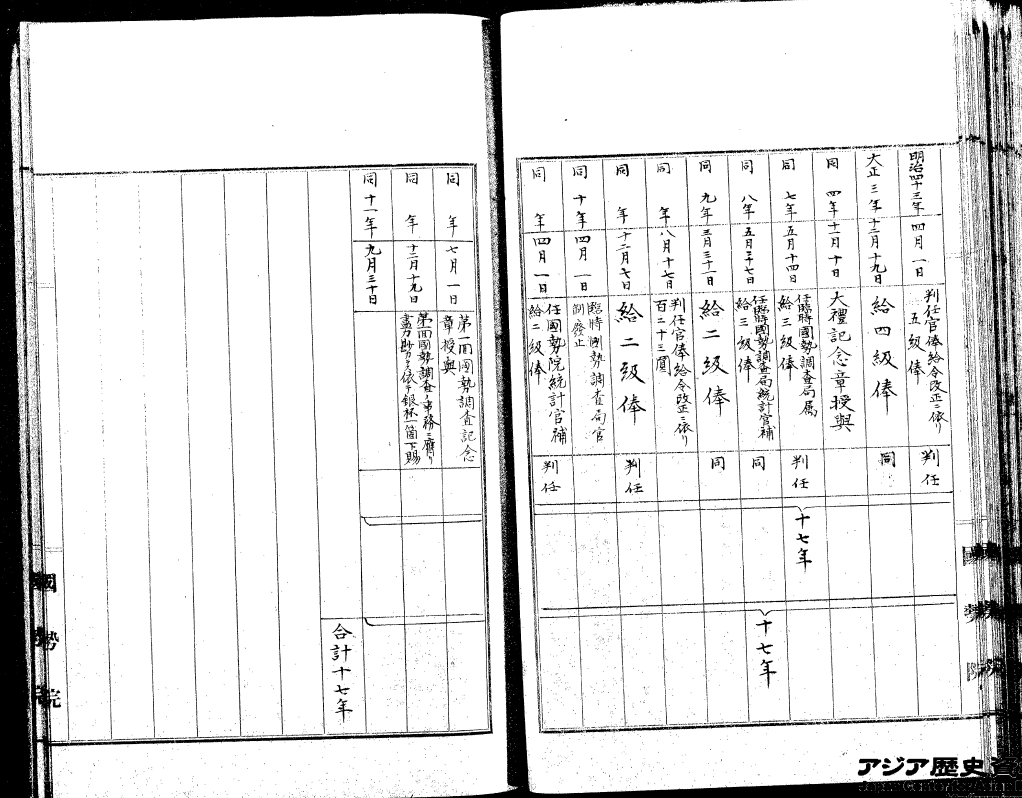 明治四十三年 四月一日 判任官俸給令改正ニ依リ五級俸 判任
大正三年 十二月十九日 給四級俸 同
同四年 十一月十日 大禮記念章授與
同七年 五月十四日 任臨時國勢調査局属 給三級俸 判任
十七年
同八年 五月二十七日 任臨時國勢調査局統計官補 給三級俸 同
十七年
同九年 三月三十一日 給二級俸 同
同年 八月十七日 判任官俸給令改正ニ依リ百二十三圓
同年 十二月七日 給二級俸 判任
同十年 四月一日 臨時國勢調査局官制廢止
同年 四月一日 任國勢院統計官補 給二級俸 判任
國勢院
同年 七月一日 第一回國勢調査記念章授與
同年 十二月十九日 第一回國勢調査ノ事務ニ膺リ盡力尠カラス依テ銀杯一箇下賜
同十一年 九月三十日
合計十七年
國勢院
アジア歴史資